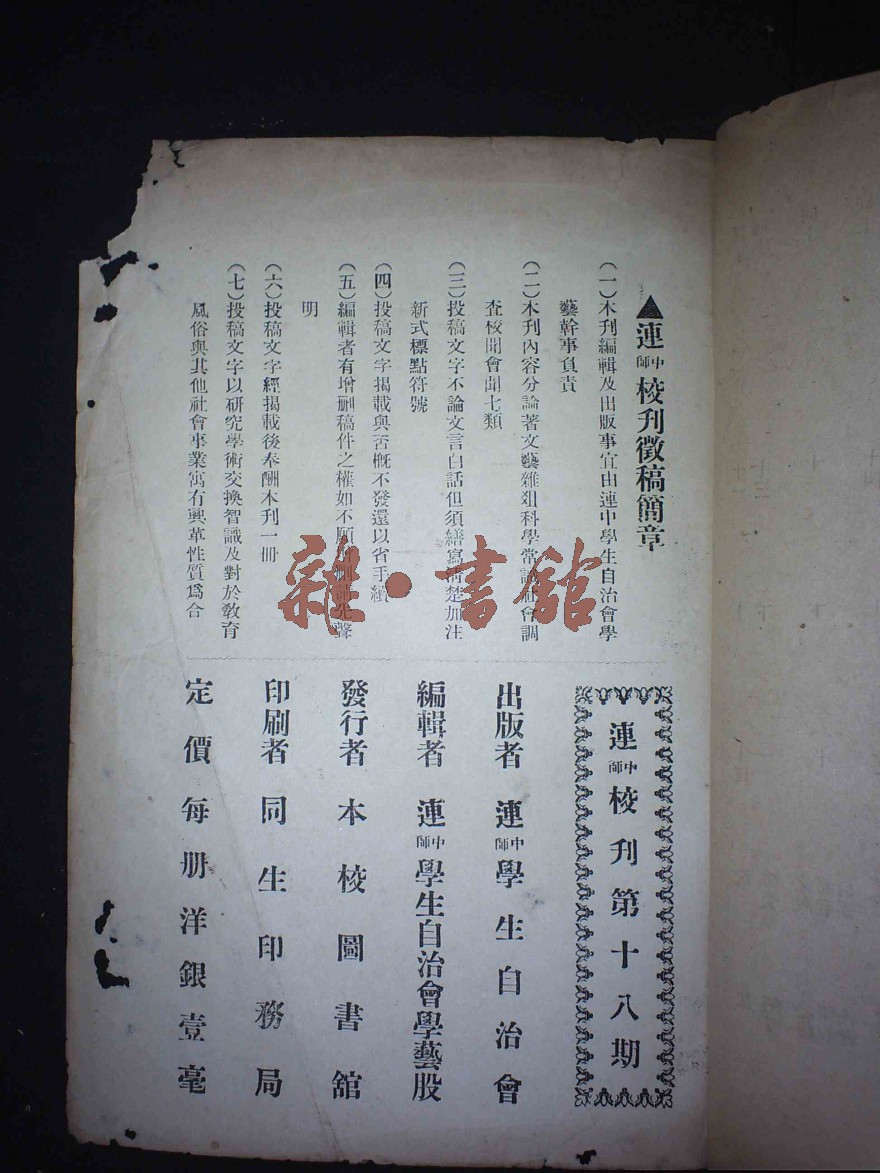 ▲連中師校刊徵稿簡章
（一）本刊編輯及出版事宜由連中學生自治會學
藝幹事負責
（二）本刊內容分論著文藝雜俎科學常識社會調
查校聞會聞七類
（三）投稿文字不論文言白話但須繕寫清楚加注
新式標點符號
（四）投稿文字揭載與否概不發還以省手續
（五）編輯者有增删稿件之權如不願 删請先聲
明
（六）投稿文字經揭載後奉酬本刊一冊
（七）投稿文字以研究學術交換智識及對於敎育
風俗與其他社會事業寓有興革性質爲合
連中師校刊第十八期
出版者 連中師學生自治會
編輯者 連中師學生自治會學藝股
發行者 本校圖書舘
印刷者 同生印務局
定價每册洋銀壹毫
雜·書舘